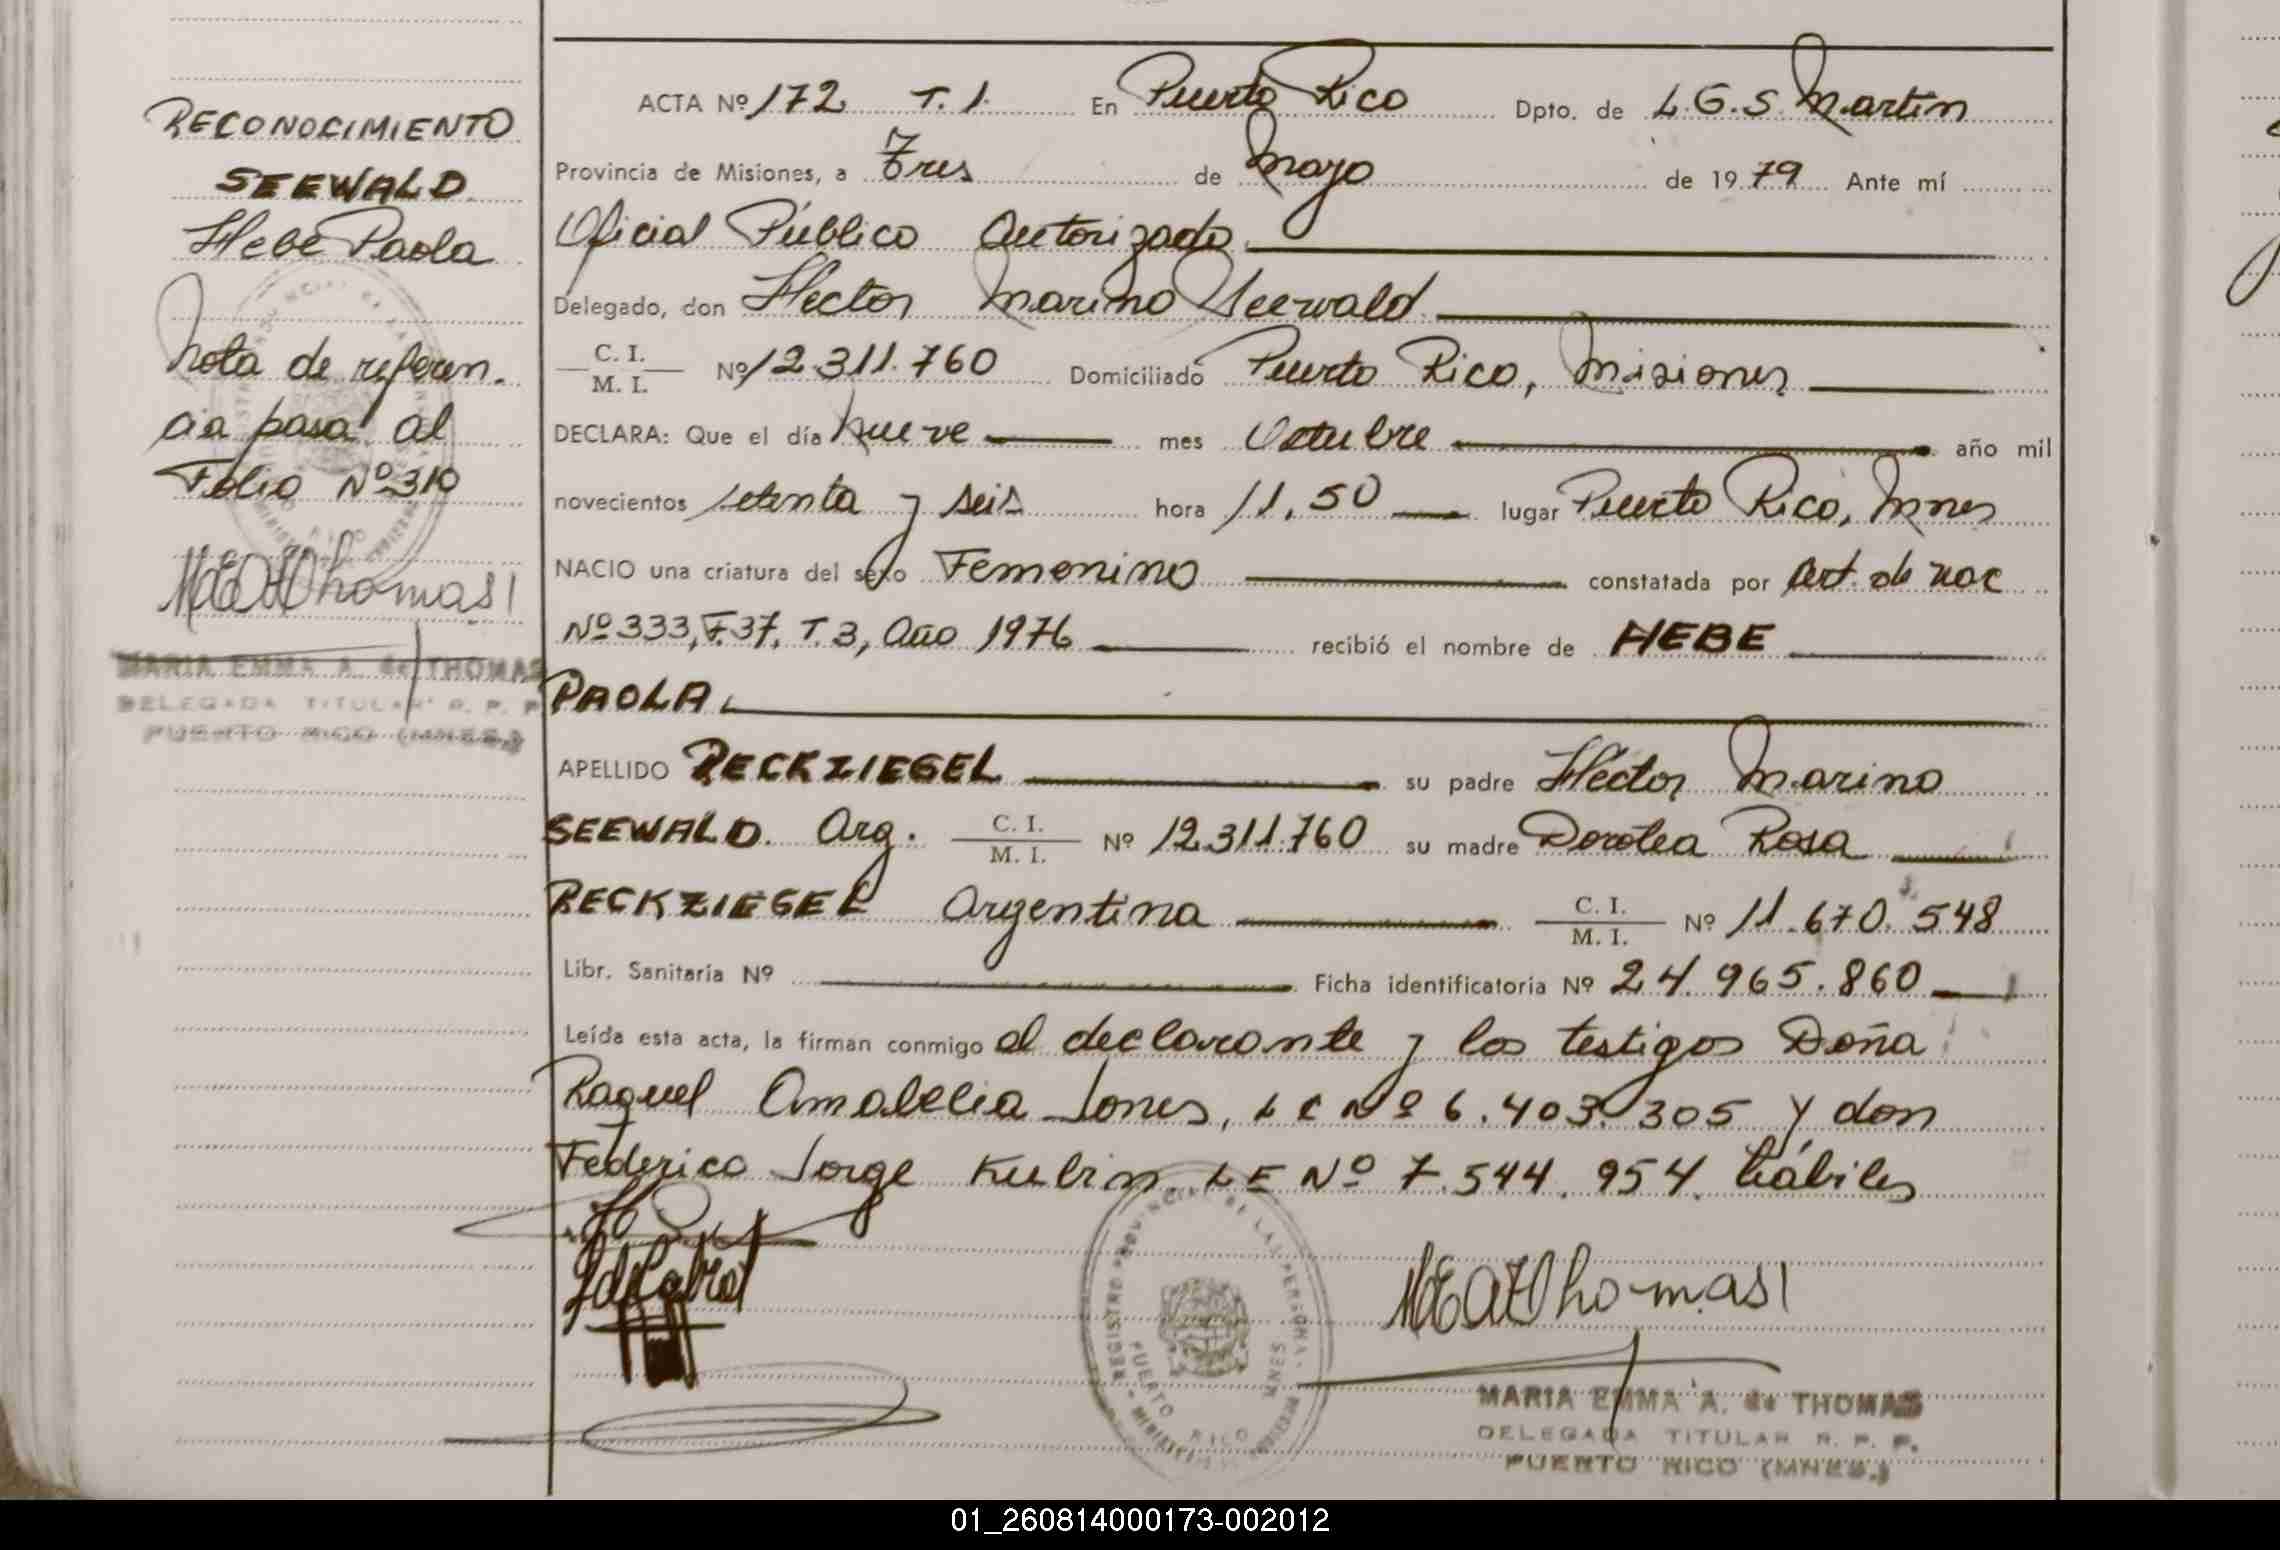 RECONOCIMIENTO
SEEWALD
Hebe Paola
Nota de referen.
cia pasa al
Folio Nº 310
MEAThomas
MARIA EMMA A. de THOMAS
DELEGADA TITULAR R. P. P.
PUERTO RICO (MNES.)
ACTA Nº 172 T. 1. En Puerto Rico Dpto. de L.G.S. Martin
Provincia de Misiones, a Tres de Mayo de 1979 Ante mí
Oficial Público Autorizado
Delegado, don Hector Marino Seewald
C. I. / M. I. Nº 12.311.760 Domiciliado Puerto Rico, Misiones
DECLARA: Que el día Nueve mes Octubre año mil
novecientos setenta y seis hora 11,50 lugar Puerto Rico, Mnes
NACIO una criatura del sexo Femenino constatada por Art. de nac
Nº 333, F.37, T.3, Año 1976 recibió el nombre de HEBE
PAOLA
APELLIDO RECKZIEGEL su padre Hector Marino
SEEWALD. Arg. C. I. / M. I. Nº 12.311.760 su madre Dorotea Rosa
RECKZIEGEL Argentina C. I. / M. I. Nº 11.670.548
Libr. Sanitaria Nº Ficha identificatoria Nº 24.965.860
Leída esta acta, la firman conmigo el declarante y los testigos Doña
Raquel Amabelia Jones, LC Nº 6.403.305 y don
Federico Jorge Kubin LE Nº 7.544.954. hábiles
REGISTRO PROVINCIAL DE LAS PERSONAS
PUERTO RICO MNES
MEAThomas
MARIA EMMA A. de THOMAS
DELEGADA TITULAR R. P. P.
PUERTO RICO (MNES.)
01_260814000173-002012